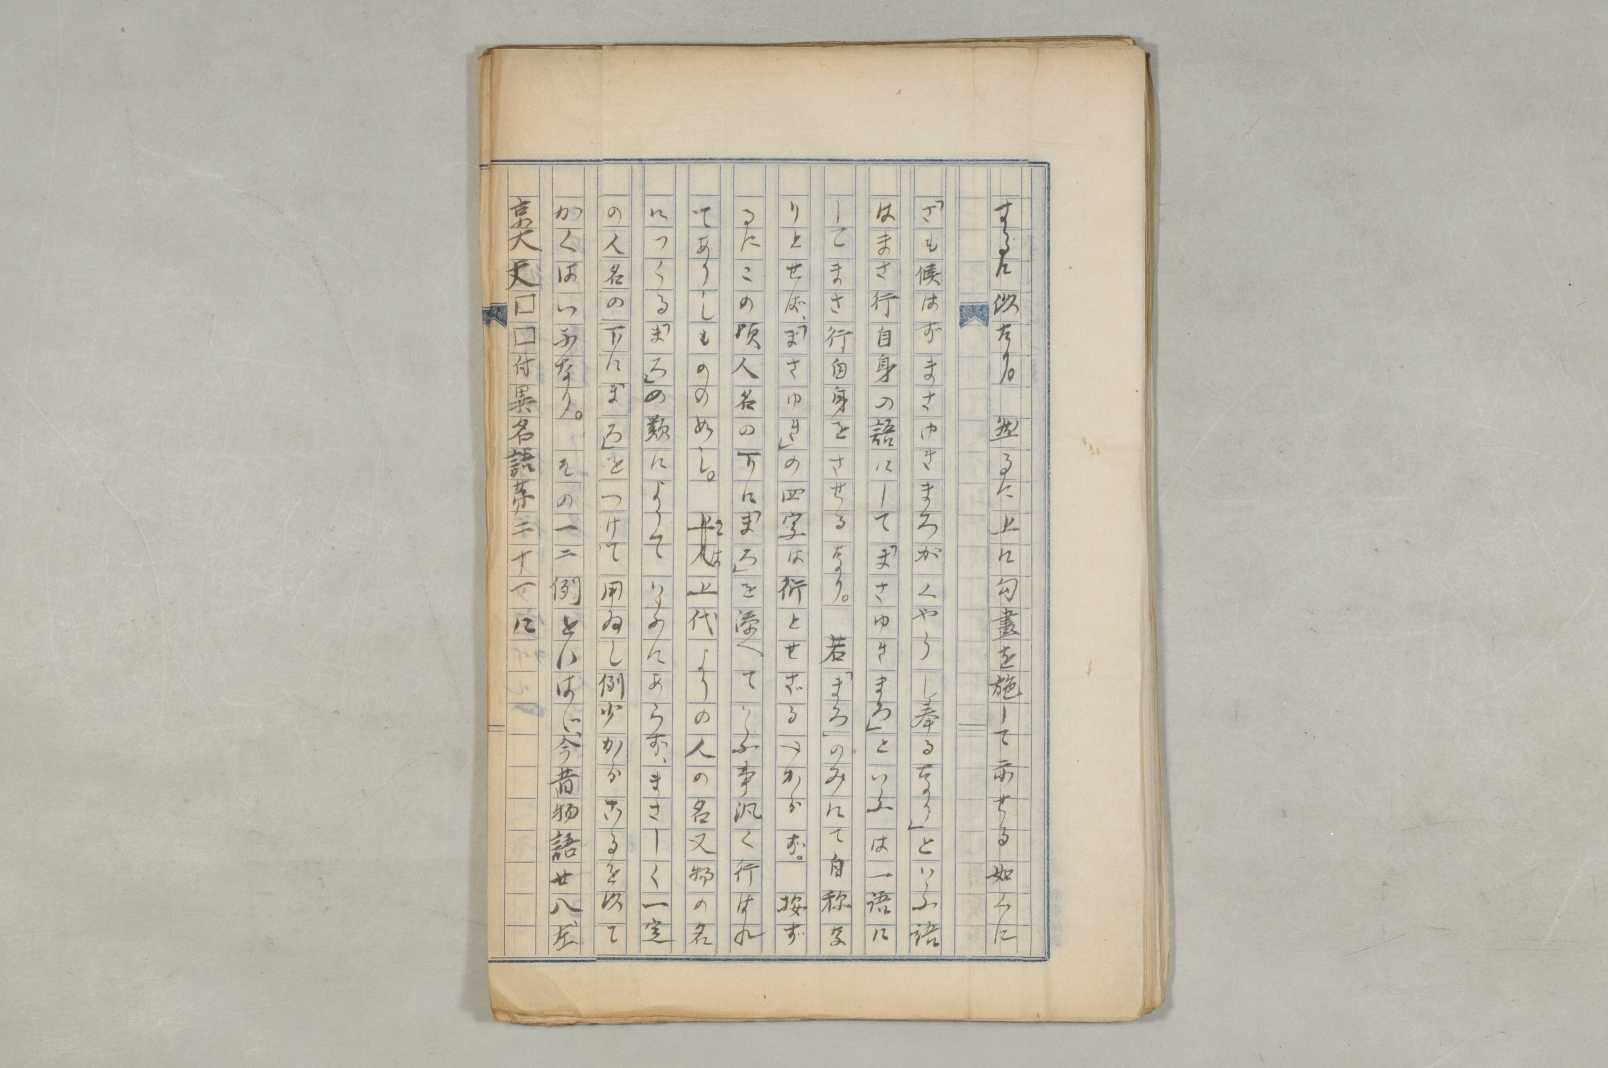 するに似たり。然るに上に句畫を施して示せる如くに
「さも候はずまさゆきまろがくやうし奉るなり」といふ語
はまさ行自身の語にして「まさゆきまろ」といふは一語に
してまさ行自身をさせるなり。若「まろ」のみにて自称な
りとせば、「まさゆき」の四字は衍とせざるべからず。按ず
るにこの頃人名の下に「まろ」を添へていふ事汎く行はれ
てありしものの如し。そは上代よりの人の名又物の名
につくる「まろ」の類によりていふにあらず、まさしく一定
の人名の下に「まろ」をつけて用ゐし例少からざるを以て
かくはいふなり。その一二例をいはば、今昔物語廿八左
京大夫□□付異名語第二十一に